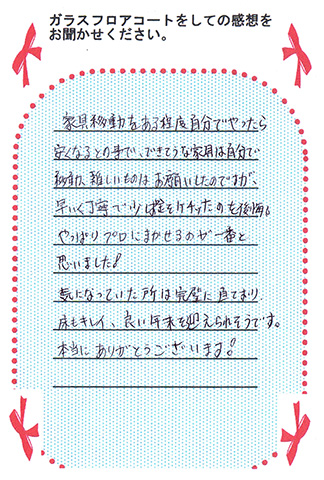 ガラスフロアコートをしての感想を
お聞かせください。
家具移動をある程度自分でやったら
安くなるとの事で、できそうな家具は自分で
移動、難しいものはお願いしたのですが、
早いく丁寧で少し金をケチったのも後悔。
やっぱりプロにまかせるのが一番と
思いました!
気になっていた所は完璧に直ており、
床もキレイ、良い年末を迎えられそうです。
本当にありがとうございます!